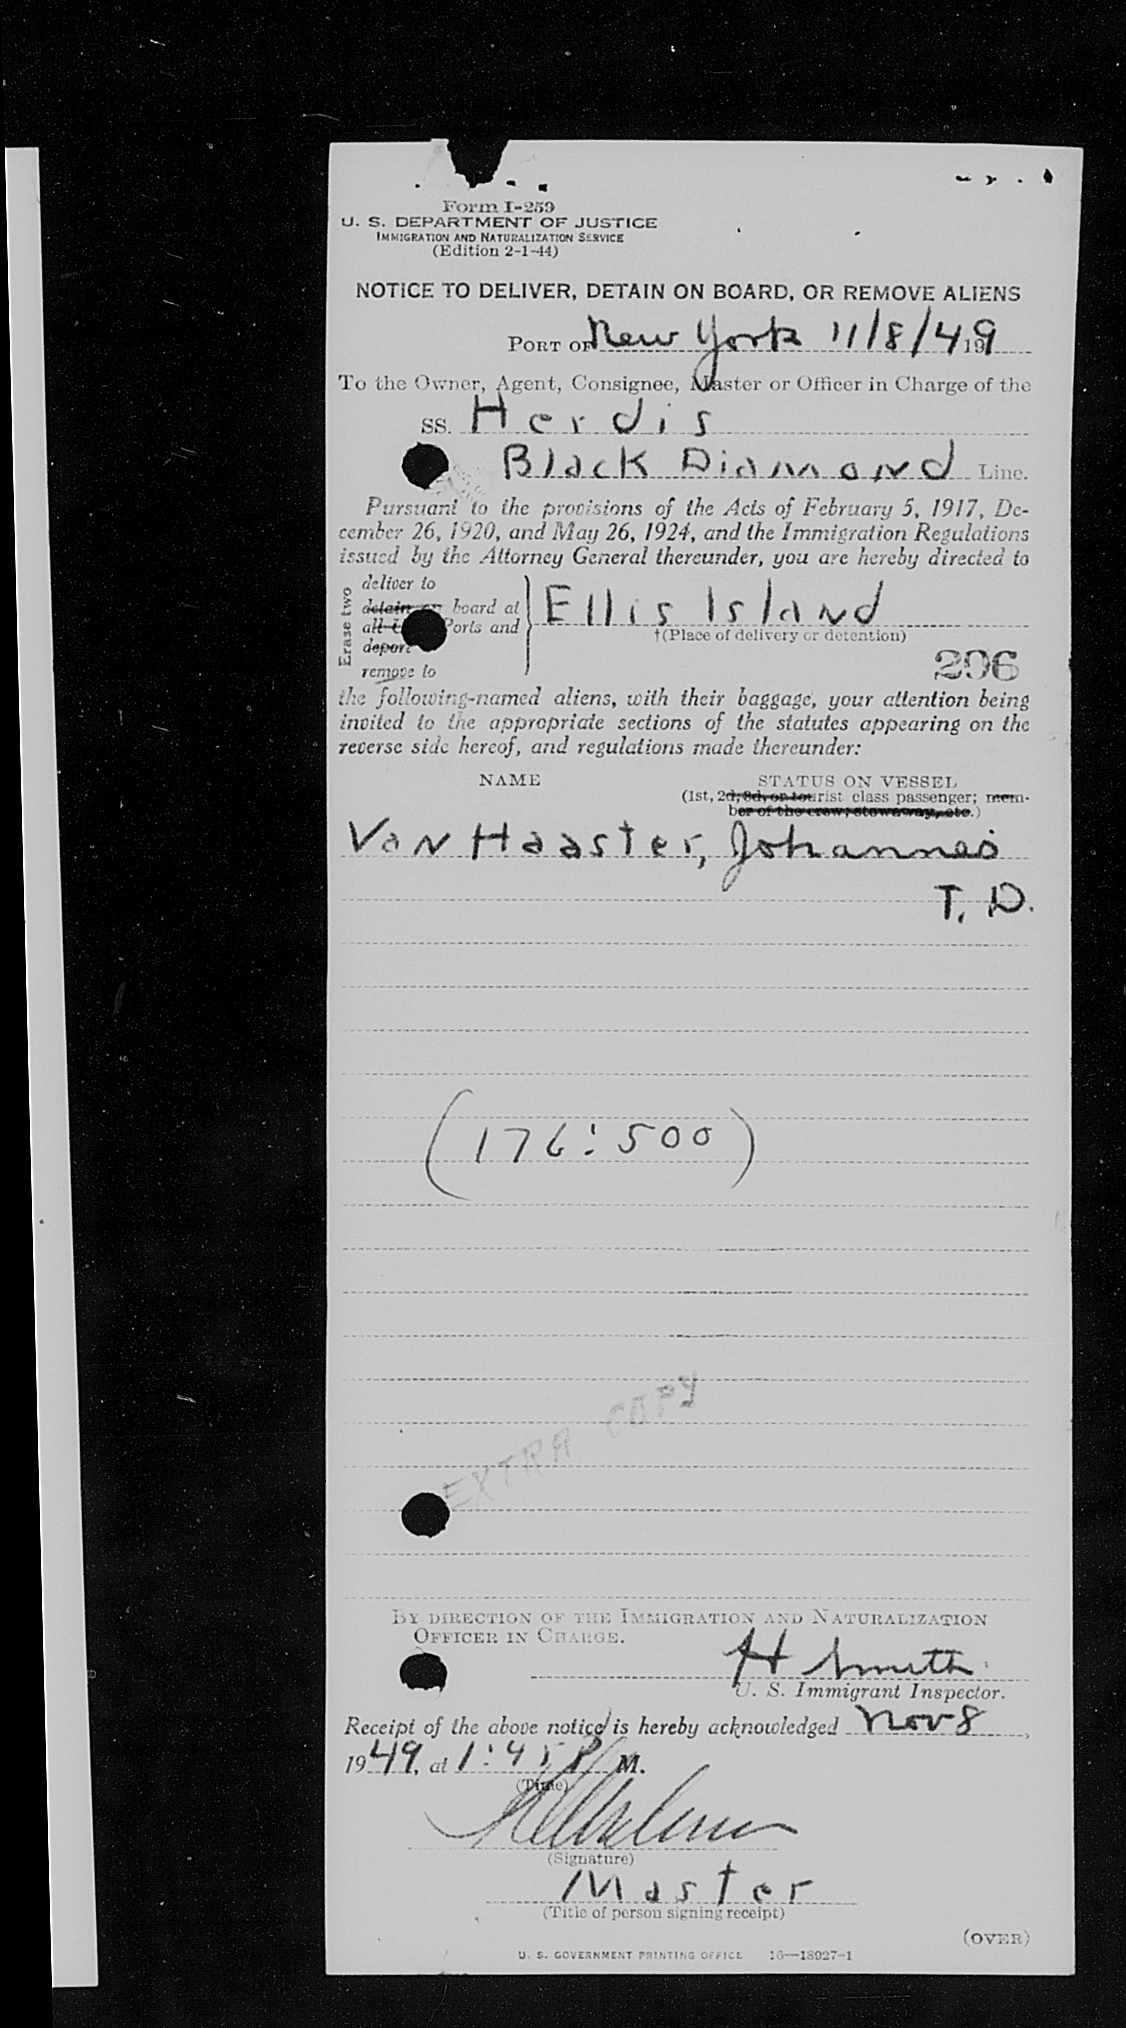 Form I-259
U. S. DEPARTMENT OF JUSTICE
IMMIGRATION AND NATURALIZATION SERVICE
(Edition 2-1-44)
NOTICE TO DELIVER, DETAIN ON BOARD, OR REMOVE ALIENS
PORT OF New York 11/8/49 19
To the Owner, Agent, Consignee, Master or Officer in Charge of the
SS. Herdis
Black Diamond Line.
Pursuant to the provisions of the Acts of February 5, 1917, De-
cember 26, 1920, and May 26, 1924, and the Immigration Regulations
issued by the Attorney General thereunder, you are hereby directed to
Erase two
deliver to
detain on board at
all U Ports and
deport
remove to
Ellis Island
†(Place of delivery or detention)
296
the following-named aliens, with their baggage, your attention being
invited to the appropriate sections of the statutes appearing on the
reverse side hereof, and regulations made thereunder:
NAME STATUS ON VESSEL
(1st, 2d, 3d, or tourist class passenger; mem-
ber of the crew; stowaway, etc.)
Van Haaster, Johannes
T. D.
(176:500)
EXTRA COPY
BY DIRECTION OF THE IMMIGRATION AND NATURALIZATION
OFFICER IN CHARGE.
H Smith
U. S. Immigrant Inspector.
Receipt of the above notice is hereby acknowledged Nov 8,
1949, at 1:45 P M.
(Time)
(Signature)
Master
(Title of person signing receipt)
(OVER)
U. S. GOVERNMENT PRINTING OFFICE 16—18927-1